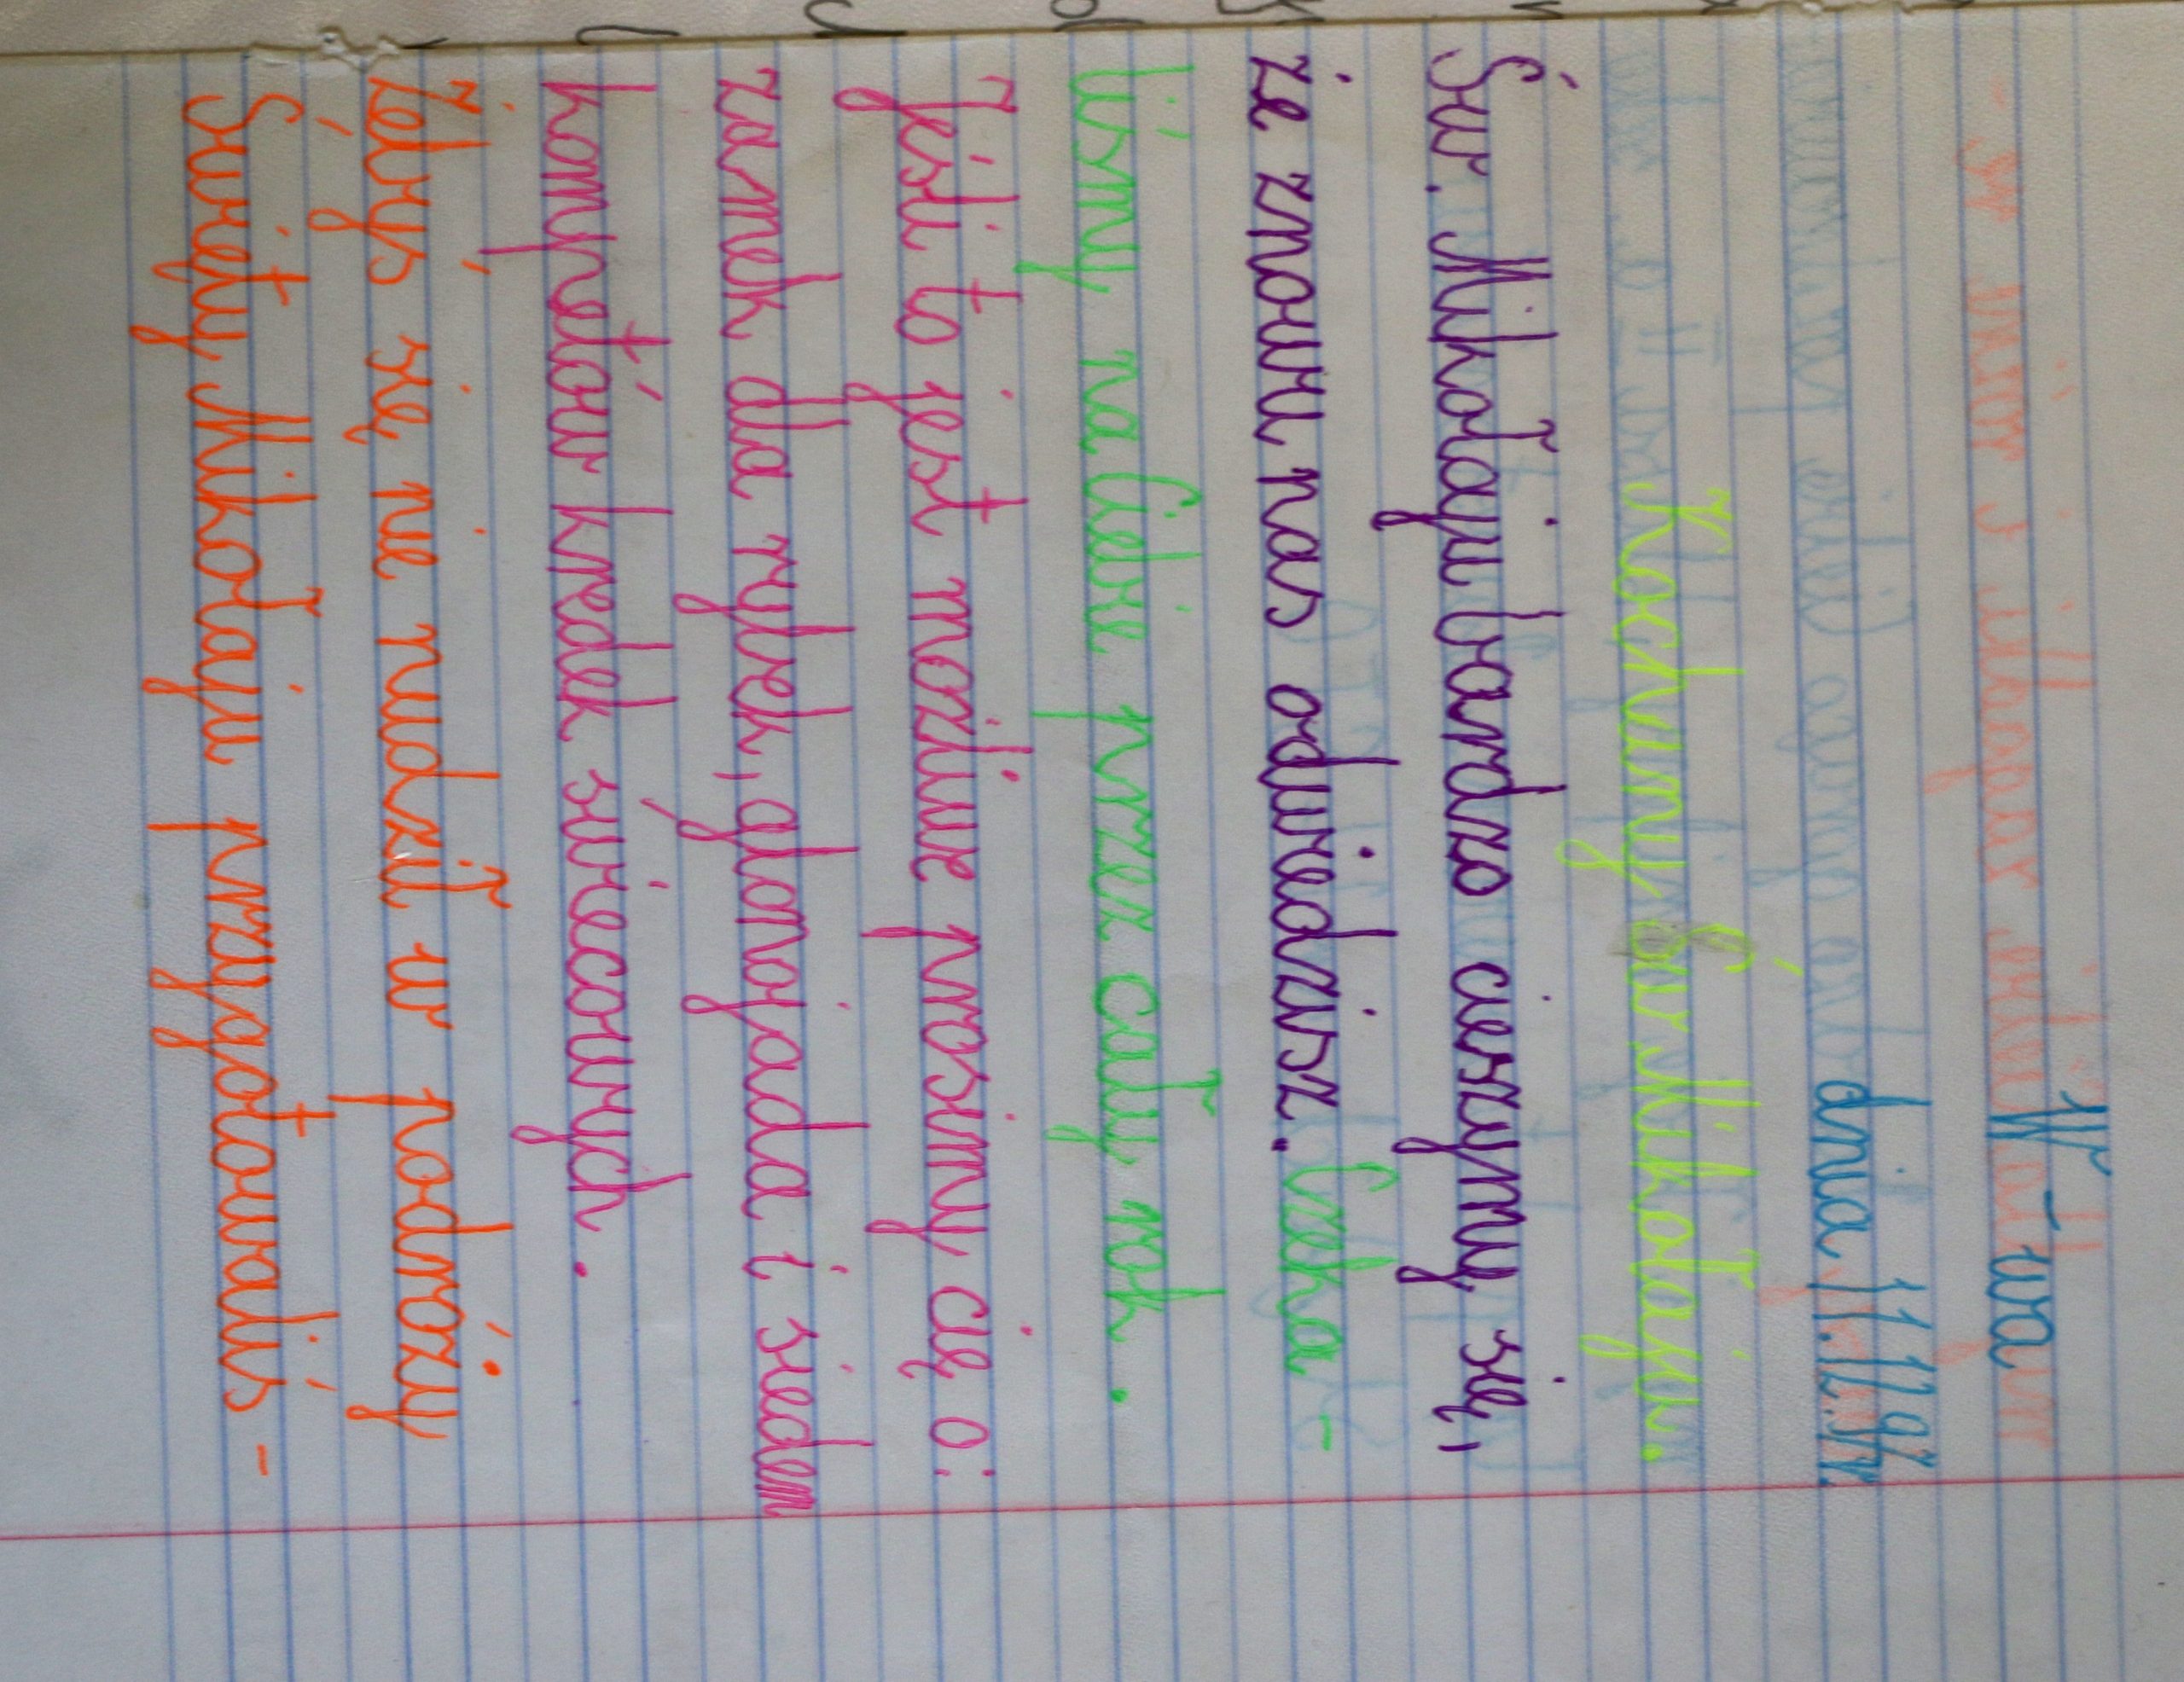 W-wa
dnia 11.12.97r.
Kochany Św Mikołaju.
Św. Mikołaju bardzo cieszymy się,
że znowu nas odwiedzisz. Czeka-
liśmy na Ciebie przez cały rok.
Jeśli to jest możliwe prosimy cię o:
zamek dla rybek, glonojada i siedem
kompletów kredek świecowych.
Żebyś się nie nudził w podróży
Święty Mikołaju przygotowaliś-